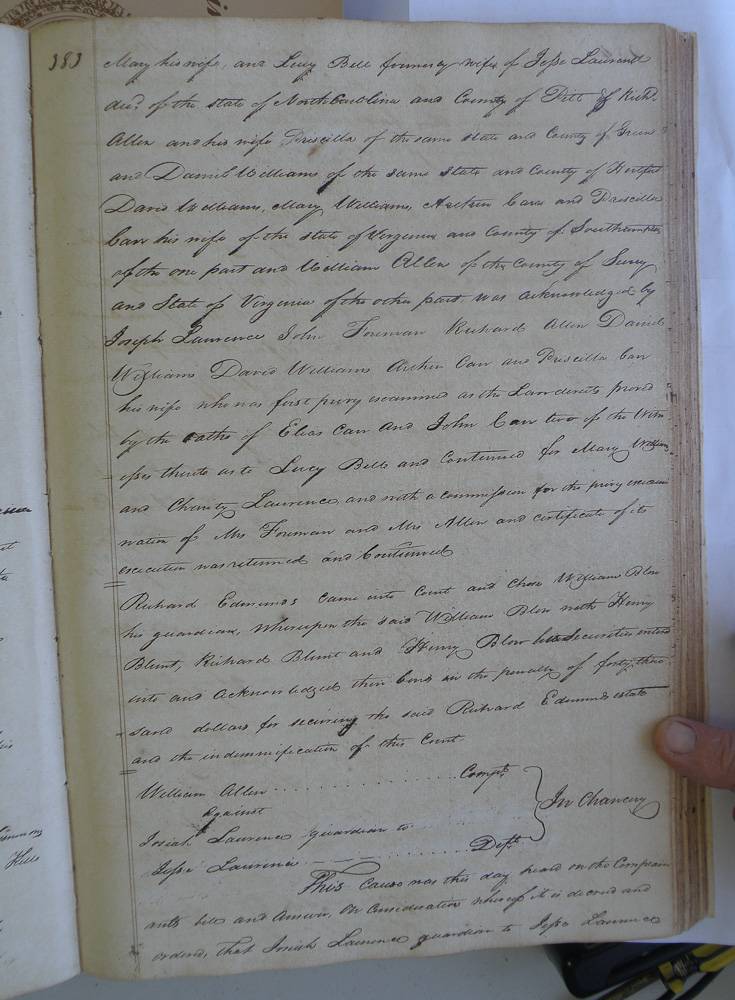 383
Mary his wife, and Lucy Bell formerly wife of Jesse Laurence
decd. of the state of North Carolina and County of Pitt Richd.
Allen and his wife Priscilla of the same state and County of Green
and Daniel Williams of the same state and County of Hertford
David Williams, Mary Williams, Arthur Carr and Priscilla
Carr his wife of the state of Virginia and County of Southampton
of the one part and William Allen of the County of Surry
and State of Virginia of the other part was acknowledged by
Joseph Laurence John Foreman Richard Allen Daniel
Williams David Williams Arthur Carr and Priscilla Carr
his wife who was first privy examined as the Law directs proved
by the oaths of Elias Carr and John Carr two of the Witn
esses thereto as to Lucy Bell and Continued for Mary Williams
and Charity Laurence and with a commission for the privy exami
nation of Mrs Foreman and Mrs Allen and certificate of its
execution was returned and Continued
Richard Edmunds came into Court and chose William Blow
his guardian, whereupon the said William Blow with Henry
Blunt, Richard Blunt and Henry Blow his Securities entered
into and acknowledged their bond in the penalty of forty thou
sand dollars for securing the said Richard Edmunds estate
and the indemnification of this Court
William Allen Complt
against
In Chancery
Josiah Laurence guardian to
Jesse Laurence Deft
This cause was this day heard on the Complain
ants bill and answer, On Consideration whereof it is decreed and
ordered, that Josiah Laurence guardian to Jesse Laurence